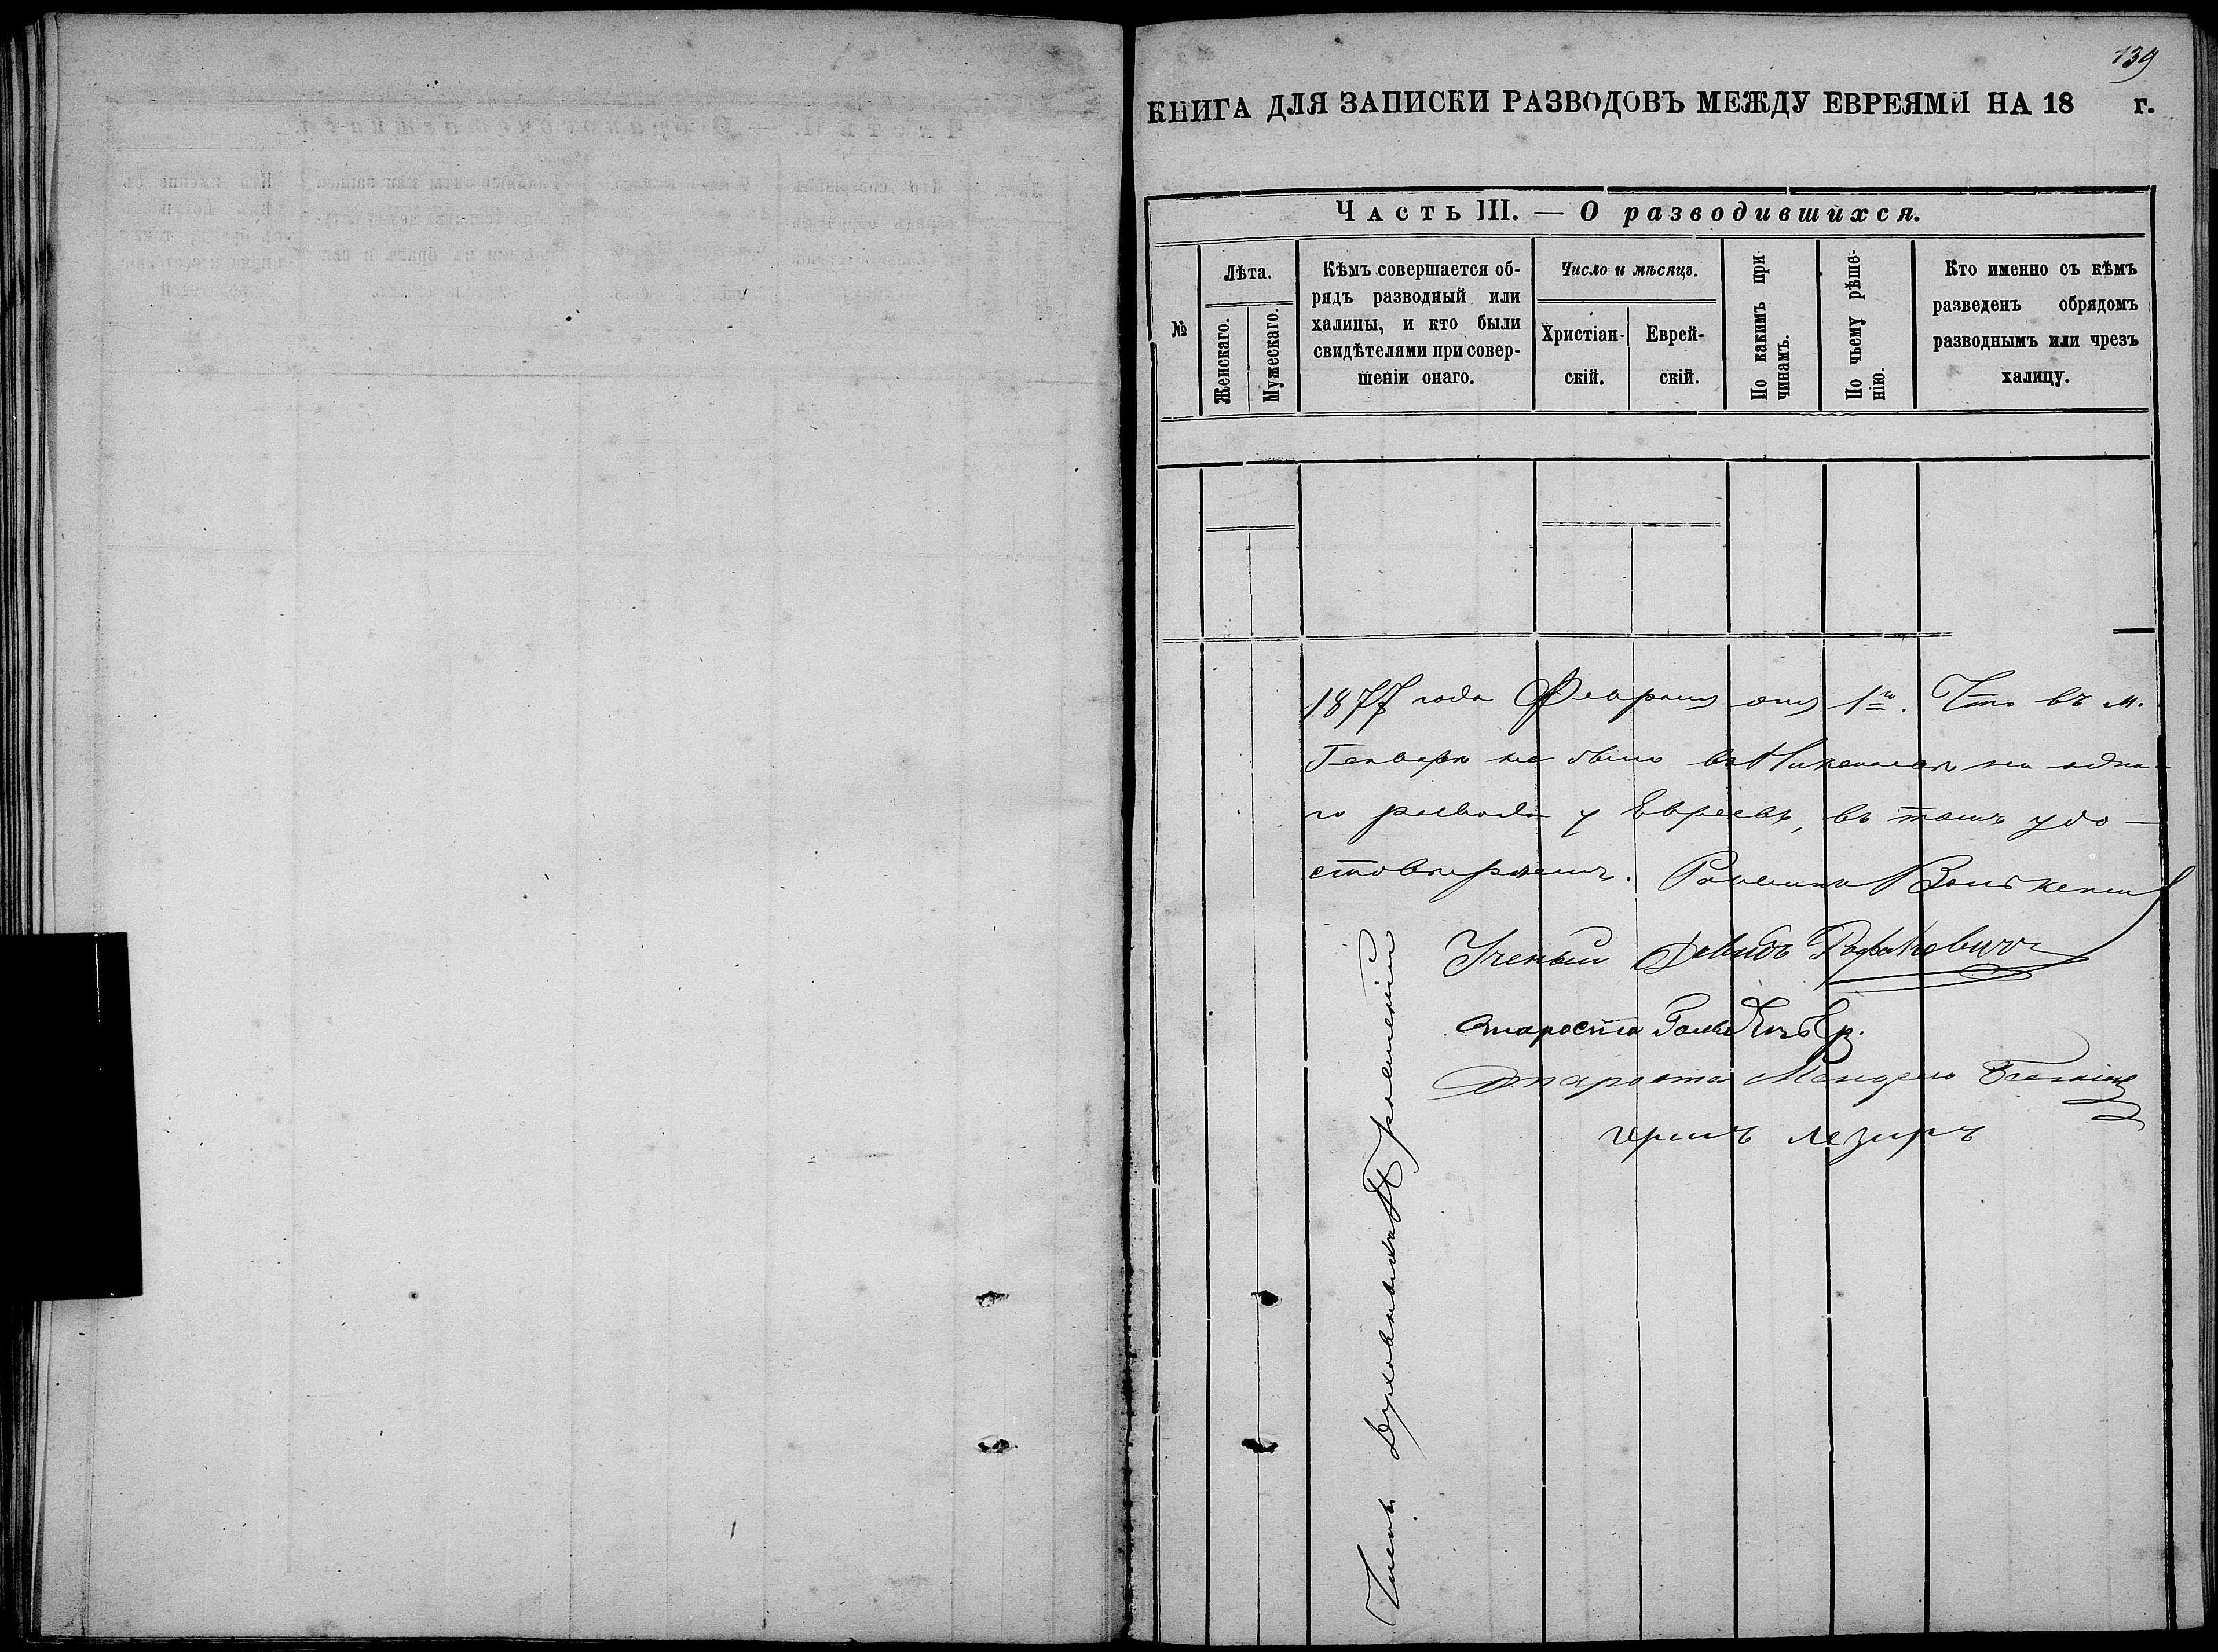 139
КНИГА ДЛЯ ЗАПИСКИ РАЗВОДОВЪ МЕЖДУ ЕВРЕЯМИ НА 18 г.
Часть III. — О разводившихся.
№
Лѣта.
Женскаго.
Мужескаго.
Кѣмъ совершается об-
рядъ разводный или
халицы, и кто были
свидѣтелями при совер-
шеніи онаго.
Число и мѣсяцъ.
Христіан-
скій.
Еврей-
скій.
По какимъ при-
чинамъ.
По чьему рѣше-
нію.
Кто именно съ кѣмъ
разведенъ обрядомъ
разводнымъ или чрезъ
халицу.
1877 года Февраля дня 1го. Что въ м.
Генваре не было въ Николаеве ни одно-
го развода у Евреевъ, въ томъ удо-
стоверяемъ. Раввинъ
Ученый Давидъ Рафаловичъ
Староста
Староста
Членъ духовныхъ Правленій